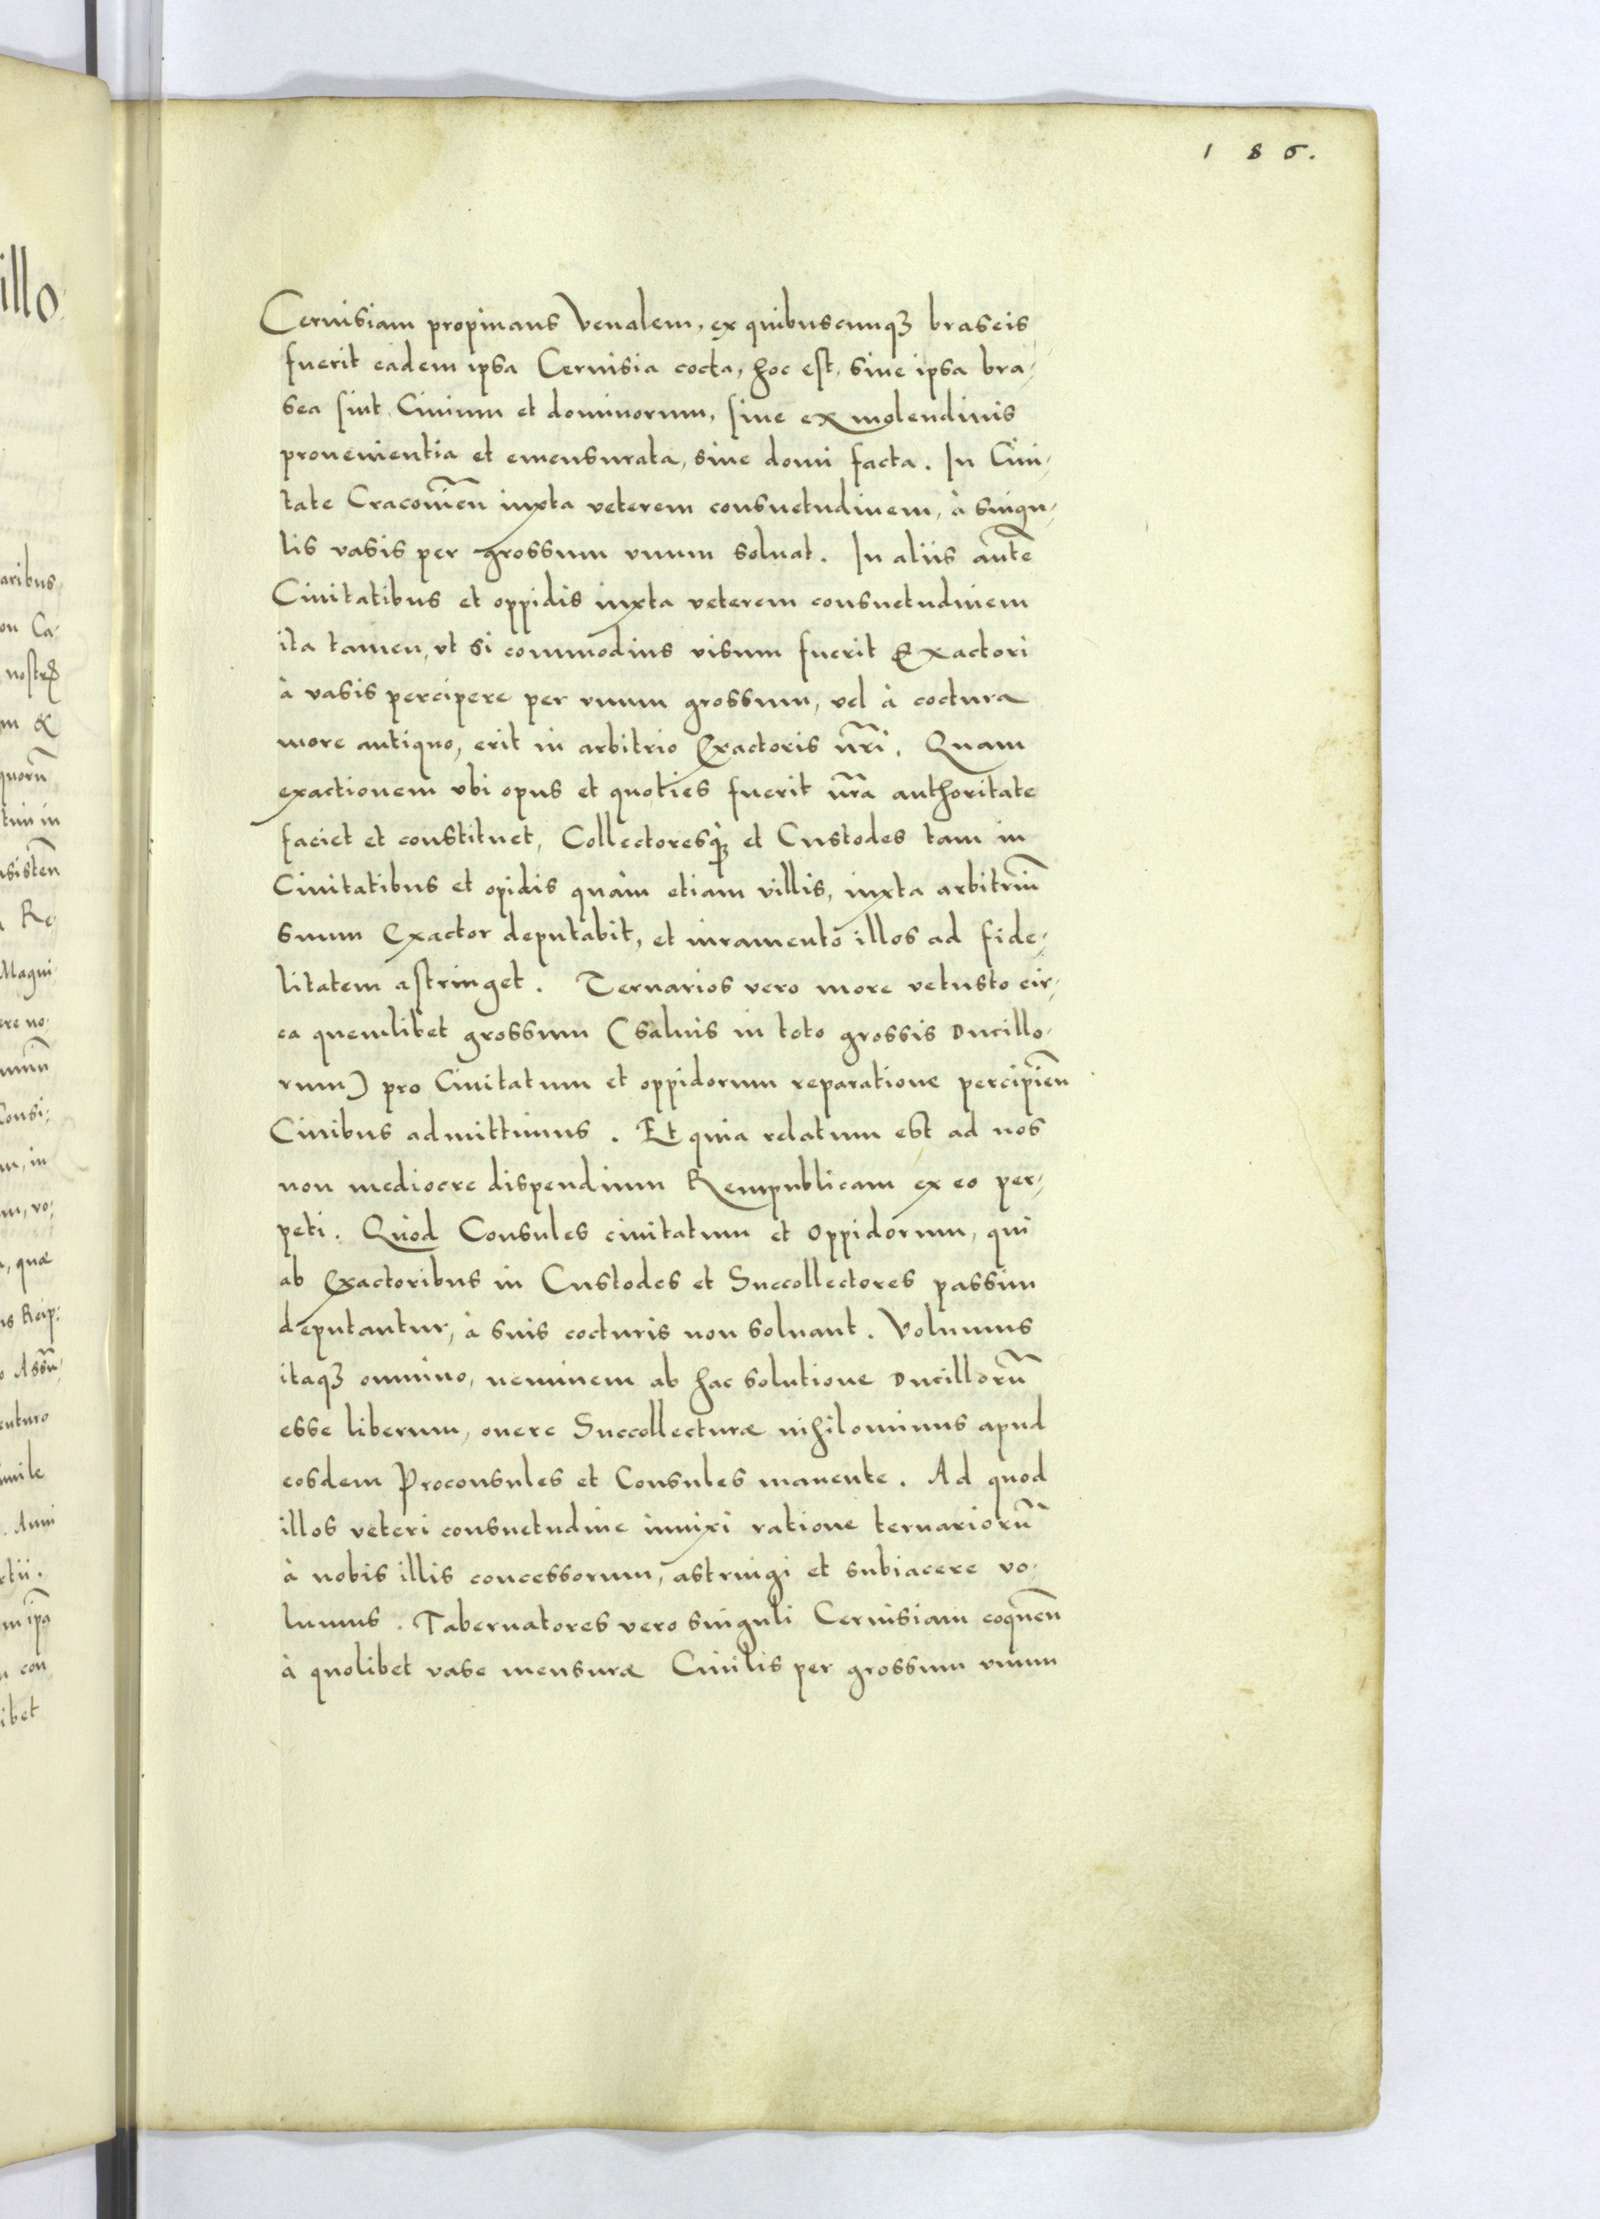 186.
Ceruisiam propinans Venalem, ex quibuscunqꝫ braseis
fuerit eadem ipsa Ceruisia cocta, hoc est, siue ipsa bra-
sea sint Ciuium et dominorum, siue ex molendinis
prouenientia et emensurata, siue domi facta. In Ciui-
tate Cracouien̄ iuxta veterem consuetudinem, à singu-
lis vasis per grossum vnum soluat. In aliis aute͂
Ciuitatibus et oppidis iuxta veterem consuetudinem
ita tamen, vt si commodius visum fuerit Exactori
à vasis percipere per vnum grossum, vel à coctura
more antiquo, erit in arbitrio Exactoris nr̃i. Quam
exactionem vbi opus et quoties fuerit nr̃a authoritate
faciet et constituet, Collectoresqꝫ et Custodes tam in
Ciuitatibus et opidis quàm etiam villis, iuxta arbitriũ
suum Exactor deputabit, et iuramento illos ad fide-
litatem astringet. Ternarios vero more vetusto cir-
ca quemlibet grossum (saluis in toto grossis Ducillo-
rum) pro Ciuitatum et oppidorum reparatione percipien̄
Ciuibus admittimus. Et quia relatum est ad nos
non mediocre dispendium Rempublicam ex eo per-
peti. Quod Consules ciuitatum et Oppidorum, qui
ab Exactoribus in Custodes et Succollectores passim
deputantur, à suis cocturis non soluant. Volumus
itaqꝫ omnino, neminem ab hac solutione Ducillorũ
esse liberum, onere Succollecturæ nihilominus apud
eosdem Proconsules et Consules manente. Ad quod
illos veteri consuetudine innixi ratione ternariorũ
à nobis illis concessorum, astringi et subiacere vo-
lumus. Tabernatores vero singuli Ceruisiam coquen̄
à quolibet vase mensuræ Ciuilis per grossum vnum